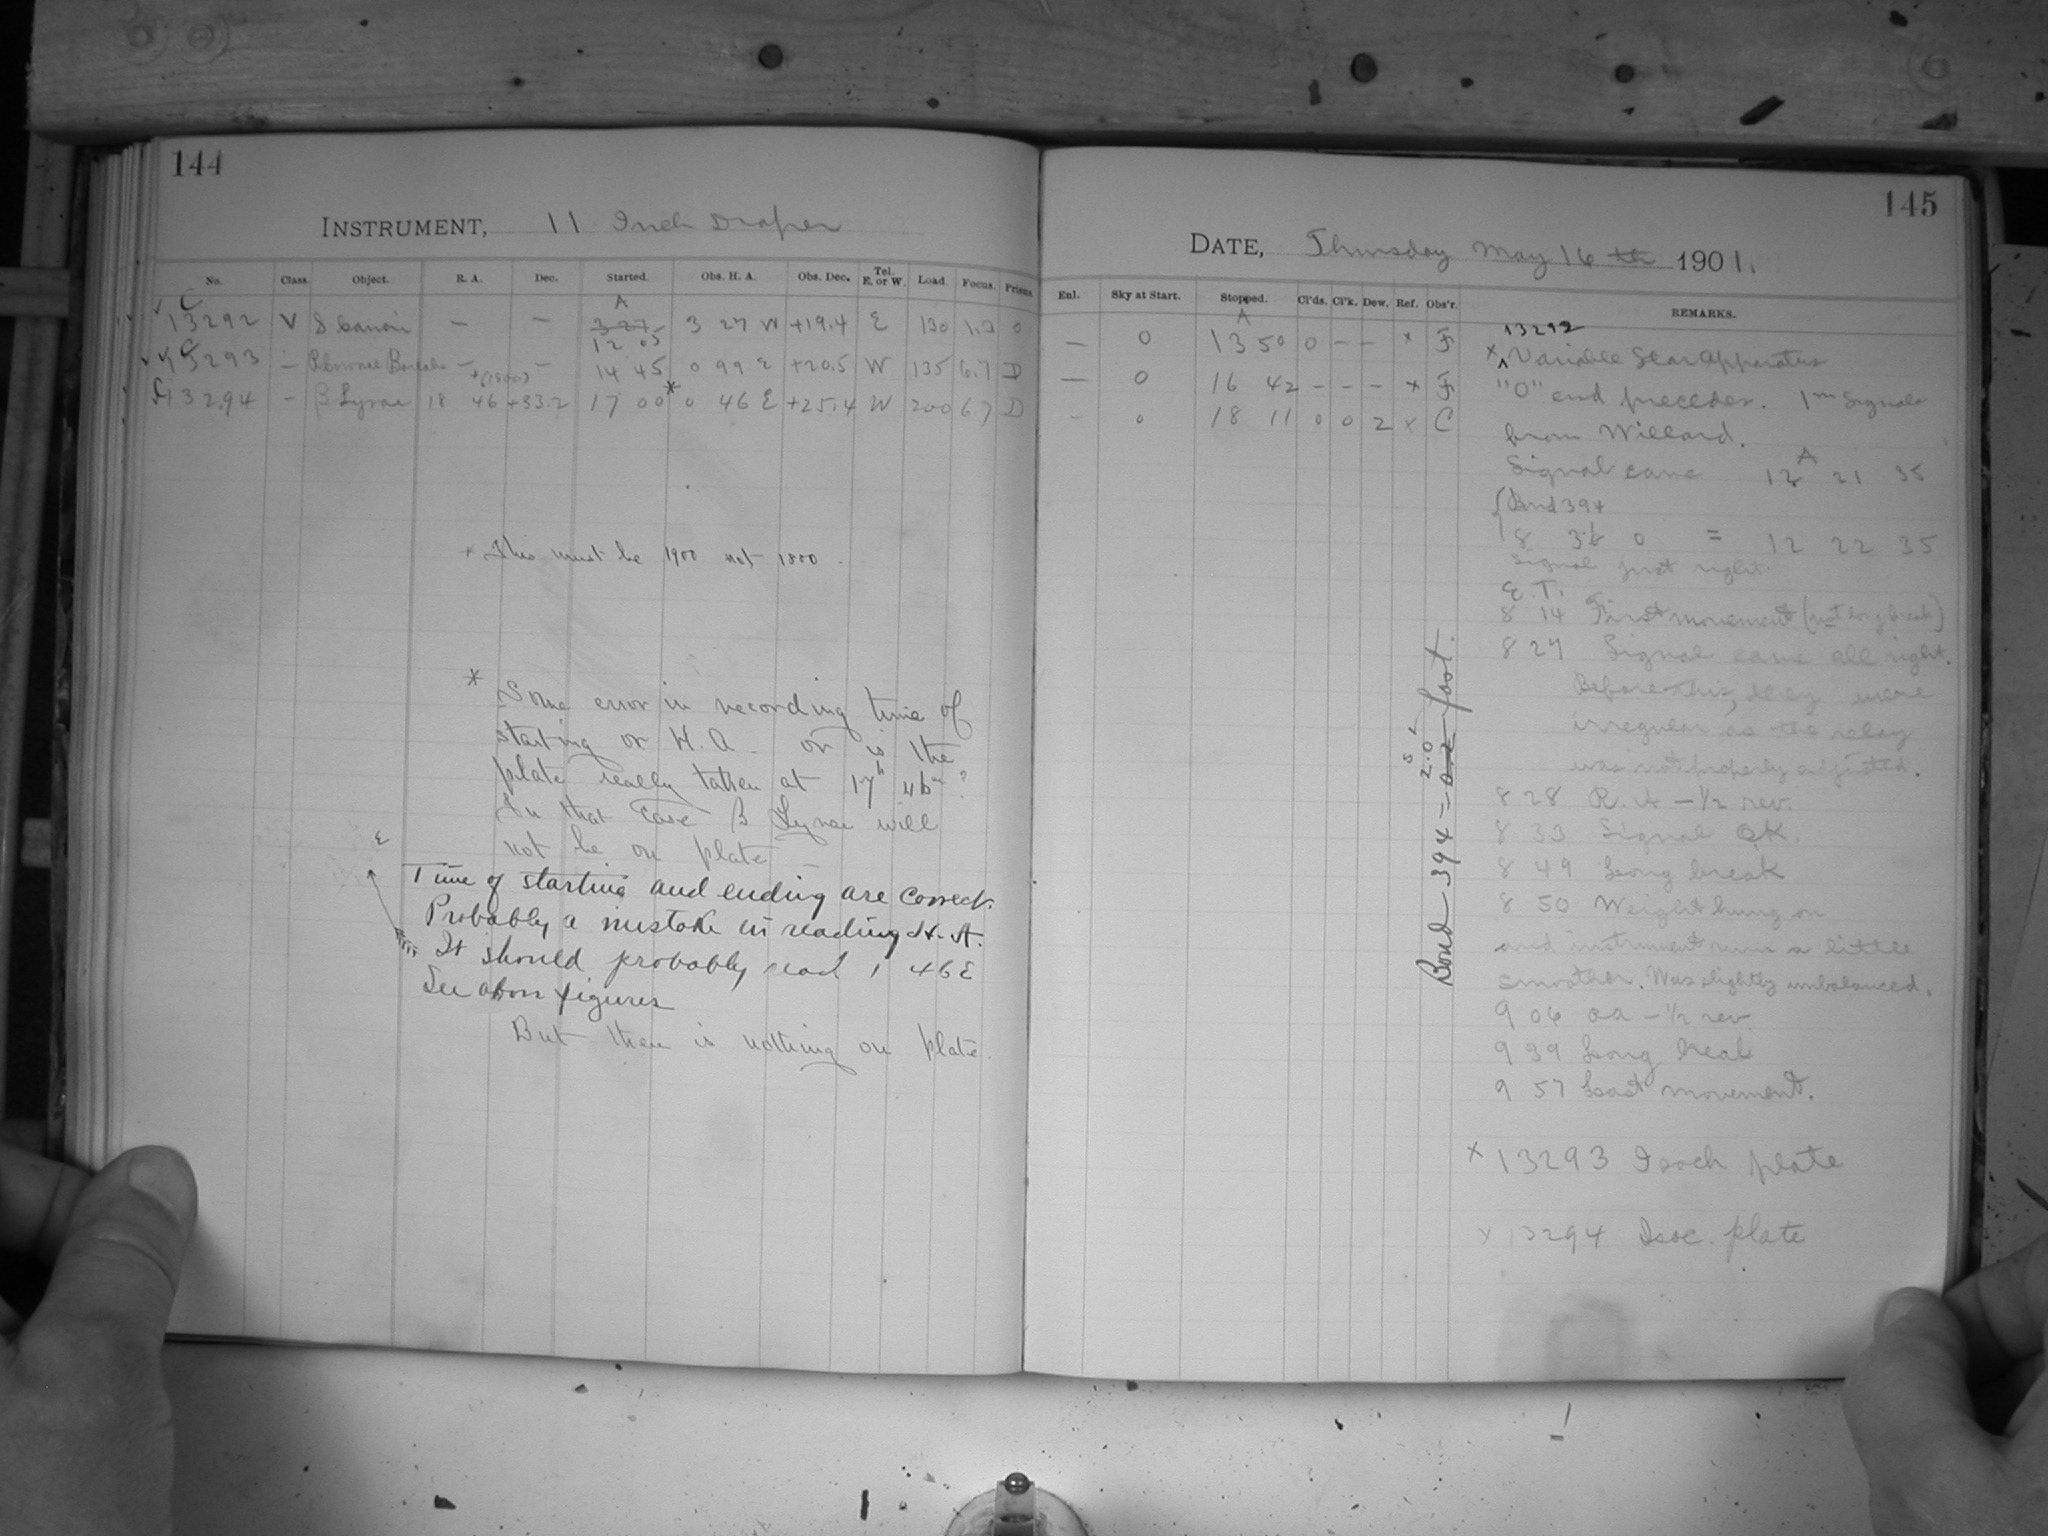 144
INSTRUMENT, 11 Inch Draper
No. Class. Object. R. A. Dec. Started. Obs. H. A. Obs. Dec. Tel. E. or W. Load. Focus. Prisms.
A
C 13292 V S Cancri — — 3 27 12 05 3 27 W +19.4 E 130 0
C 13293 — — — 14 45 0 99 E +20.5 W 135 6.7 D
*(1800)
C 13294 — β Lyrae 18 46 +33.2 17 00* 0 46 E +25.4 W 200 6.7 D
* This must be 1900 not 1800.
* Some error in recording time of
starting or H. A. or is the
plate really taken at 17h 46m?
In that case β Lyrae will
not be on plate —
E
Time of starting and ending are correct.
Probably a mistake in reading H. A.
It should probably read 1 46 E
See above figures
But there is nothing on plate.
145
DATE, Thursday May 16 th 1901.
Enl. Sky at Start. Stopped. Cl'ds. Cl'k. Dew. Ref. Obs'r. REMARKS.
A
— 0 13 50 0 — — x F
— 0 16 42 — — — x F
— 0 18 11 0 0 2 x C
13292
x Variable Star apparatus
"O" end precedes. 1m signals
from Willard.
Signal came 12 A 21 35
Bond 394
8 36 0 = 12 22 35
Signal just right.
E. T.
8 14 First movement (not long break)
8 27 Signal came all right.
Before this, they were
irregular as the relay
was not properly adjusted.
8 28 R. A — 1/2 rev.
8 33 Signal OK.
8 49 Long break
8 50 Weight hung on
and instrument runs a little
smoother. Was slightly unbalanced.
9 06 — 1/2 rev
9 39 Long break
9 57 Last movement.
x 13293 Isoch plate
x 13294 Isoc. plate
Bond 394 — 2.0 s fast.